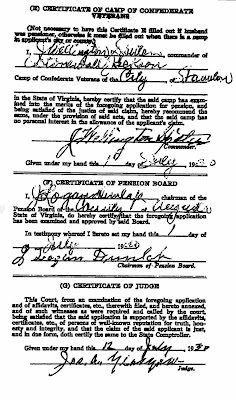 (E) CERTIFICATE OF CAMP OF CONFEDERATE
VETERANS
(Not necessary to have this Certificate if filled out if husband
was pensioner, otherwise it must be filled out when there is a camp
in applicant's city or county.)
I, J. Wellington Suter, commander of
Stonewall Jackson
Camp of Confederate Veterans of the City of Staunton
in the State of Virginia, hereby certify that the said camp has exam-
ined into the merits of the foregoing application for pension, and
being satisfied of the justice of said claim, hereby recommend the
same, under the provision of said acts, and that the said camp has
no personal interest in the allowance of the applicant's claim.
J. Wellington Suter
Commander.
Given under my hand this day of July
(F) CERTIFICATE OF PENSION BOARD
I, chairman of the
Pension Board of the of Augusta
State of Virginia, do hereby certify that the foregoing application
has been examined and approved by said Board.
In testimony whereof I hereto set my hand this day
of July
Chairman of Pension Board.
(G) CERTIFICATE OF JUDGE
This Court, from an examination of the foregoing application
and of affidavits, certificates, etc., therewith filed, and hereto annexed,
and of such witnesses as were required and called by the court,
being satisfied that the said application is supported by the affidavits,
certificates, etc., of persons of well-known reputation for truth, hon-
esty and integrity, and that the claim of the said applicant is just,
and in due form, doth certify the same to the State Comptroller.
Given under my hand this 12 day of July
Judge.